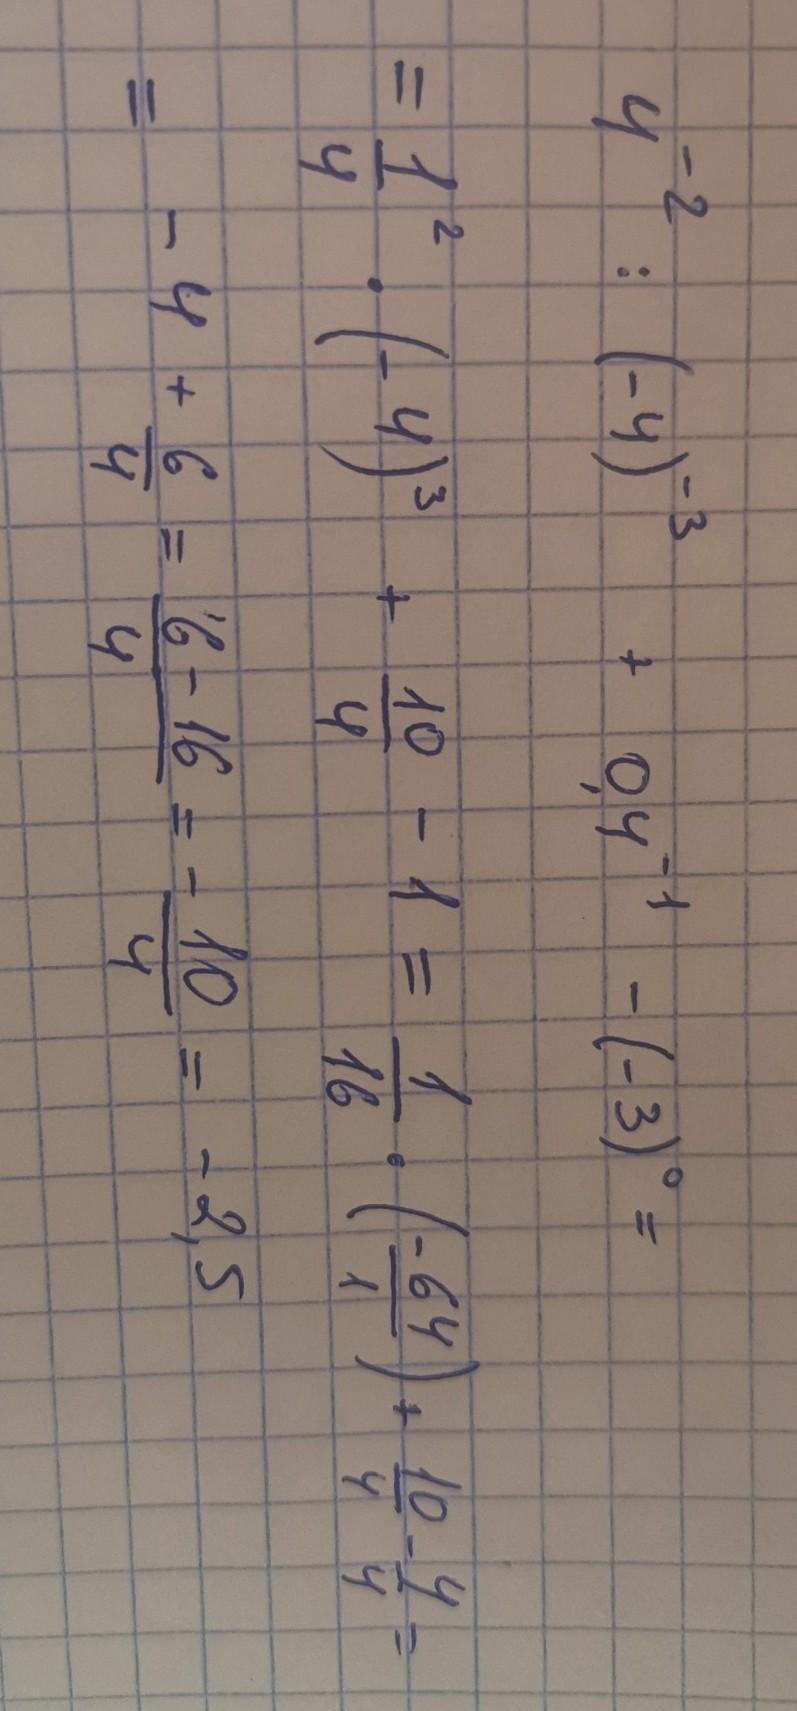 4⁻² : (-4)⁻³ + 0,4⁻¹ - (-3)⁰ =
= 1/4 ² · (-4)³ + 10/4 - 1 = 1/16 · (-64/1) + 10/4 - 4/4 =
= - 4 + 6/4 = 6-16/4 = - 10/4 = - 2,5